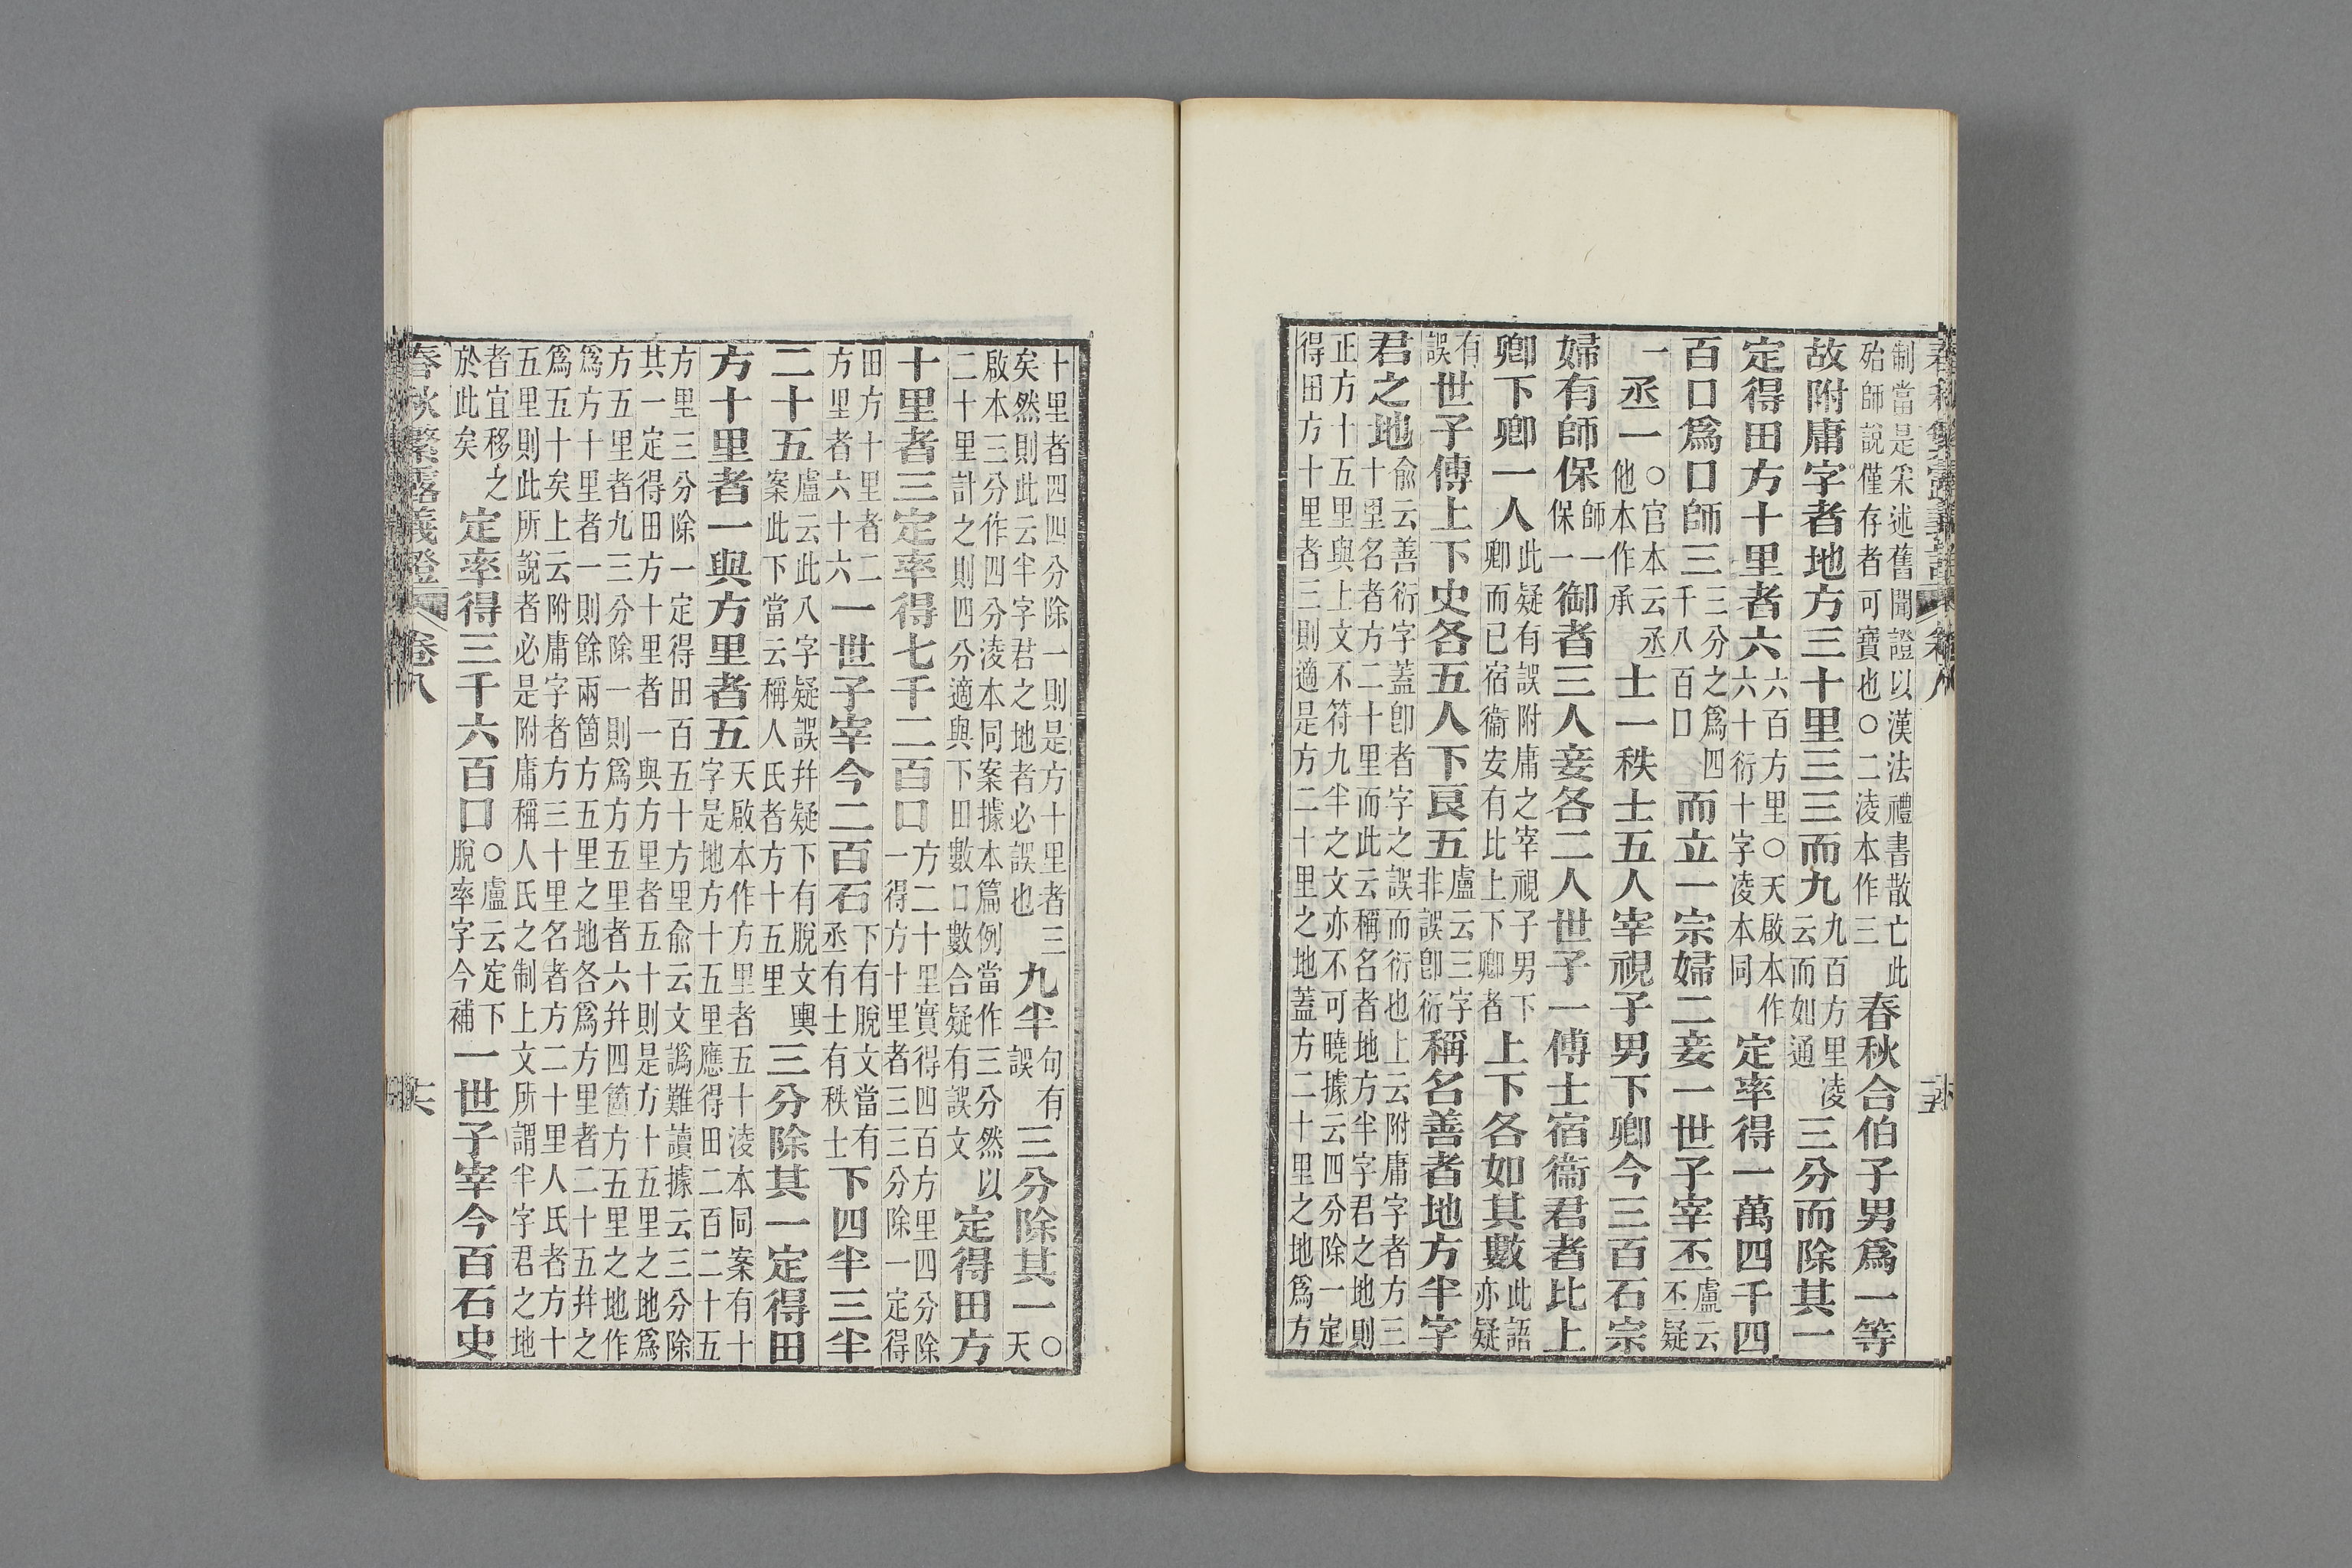 制當是采述舊聞證以漢法禮書散亡此
殆師說僅存者可寶也○二淩本作三
春秋合伯子男爲一等
故附庸字者地方三十里三三而九
九百方里凌
云而如通
三分而除其一
定得田方十里者六
六百方里○天啟本作
六十衍十字凌本同
定率得一萬四千四
百口爲口師三
三分之爲四
千八百口
而立一宗婦二妾一世子宰丕
盧云
丕疑
一
丞一
○官本云丞
他本作承
士一秩士五人宰視子男下卿今三百石宗
婦有師保
師一
保一
御者三人妾各二人世子一傅士宿衞君者比上
卿下卿一人
此疑有誤附庸之宰視子男下
卿而已宿衞安有比上下卿者
上下各如其數
此語
亦疑
有
誤
世子傅上下史各五人下良五
盧云三字
非誤卽衍
稱名善者地方半字
君之地
俞云善衍字蓋卽者字之誤而衍也上云附庸字者方三
十里名者方二十里而此云稱名者地方半字君之地則
正方十五里與上文不符九半之文亦不可曉據云四分除一定
得田方十里者三則適是方二十里之地蓋方二十里之地爲方
十里者四四分除一則是方十里者三
矣然則此云半字君之地者必誤也
九半
句有
誤
三分除其一
○
天
啟本三分作四分淩本同案據本篇例當作三分然以
二十里計之則四分適與下田數口數合疑有誤文
定得田方
十里者三定率得七千二百口
方二十里實得四百方里四分除
一得方十里者三三分除一定得
田方十里者二
方里者六十六
一世子宰今二百石
下有脫文當有
丞有士有秩士
下四半三半
二十五
盧云此八字疑誤幷疑下有脫文輿
案此下當云稱人氏者方十五里
三分除其一定得田
方十里者一與方里者五
天啟本作方里者五十淩本同案有十
字是地方十五里應得田二百二十五
方里三分除一定得田百五十方里俞云文譌難讀據云三分除
其一定得田方十里者一與方里者五十則是方十五里之地爲
方五里者九三分除一則爲方五里者六幷四箇方五里之地作
爲方十里者一則餘兩箇方五里之地各爲方里者二十五幷之
爲五十矣上云附庸字者方三十里名者方二十里人氏者方十
五里則此所說者必是附庸稱人氏之制上文所謂半字君之地
者宜移之
於此矣
定率得三千六百口
○盧云定下
脫率字今補
一世子宰今百石史
春秋繁露義證
卷八
十六